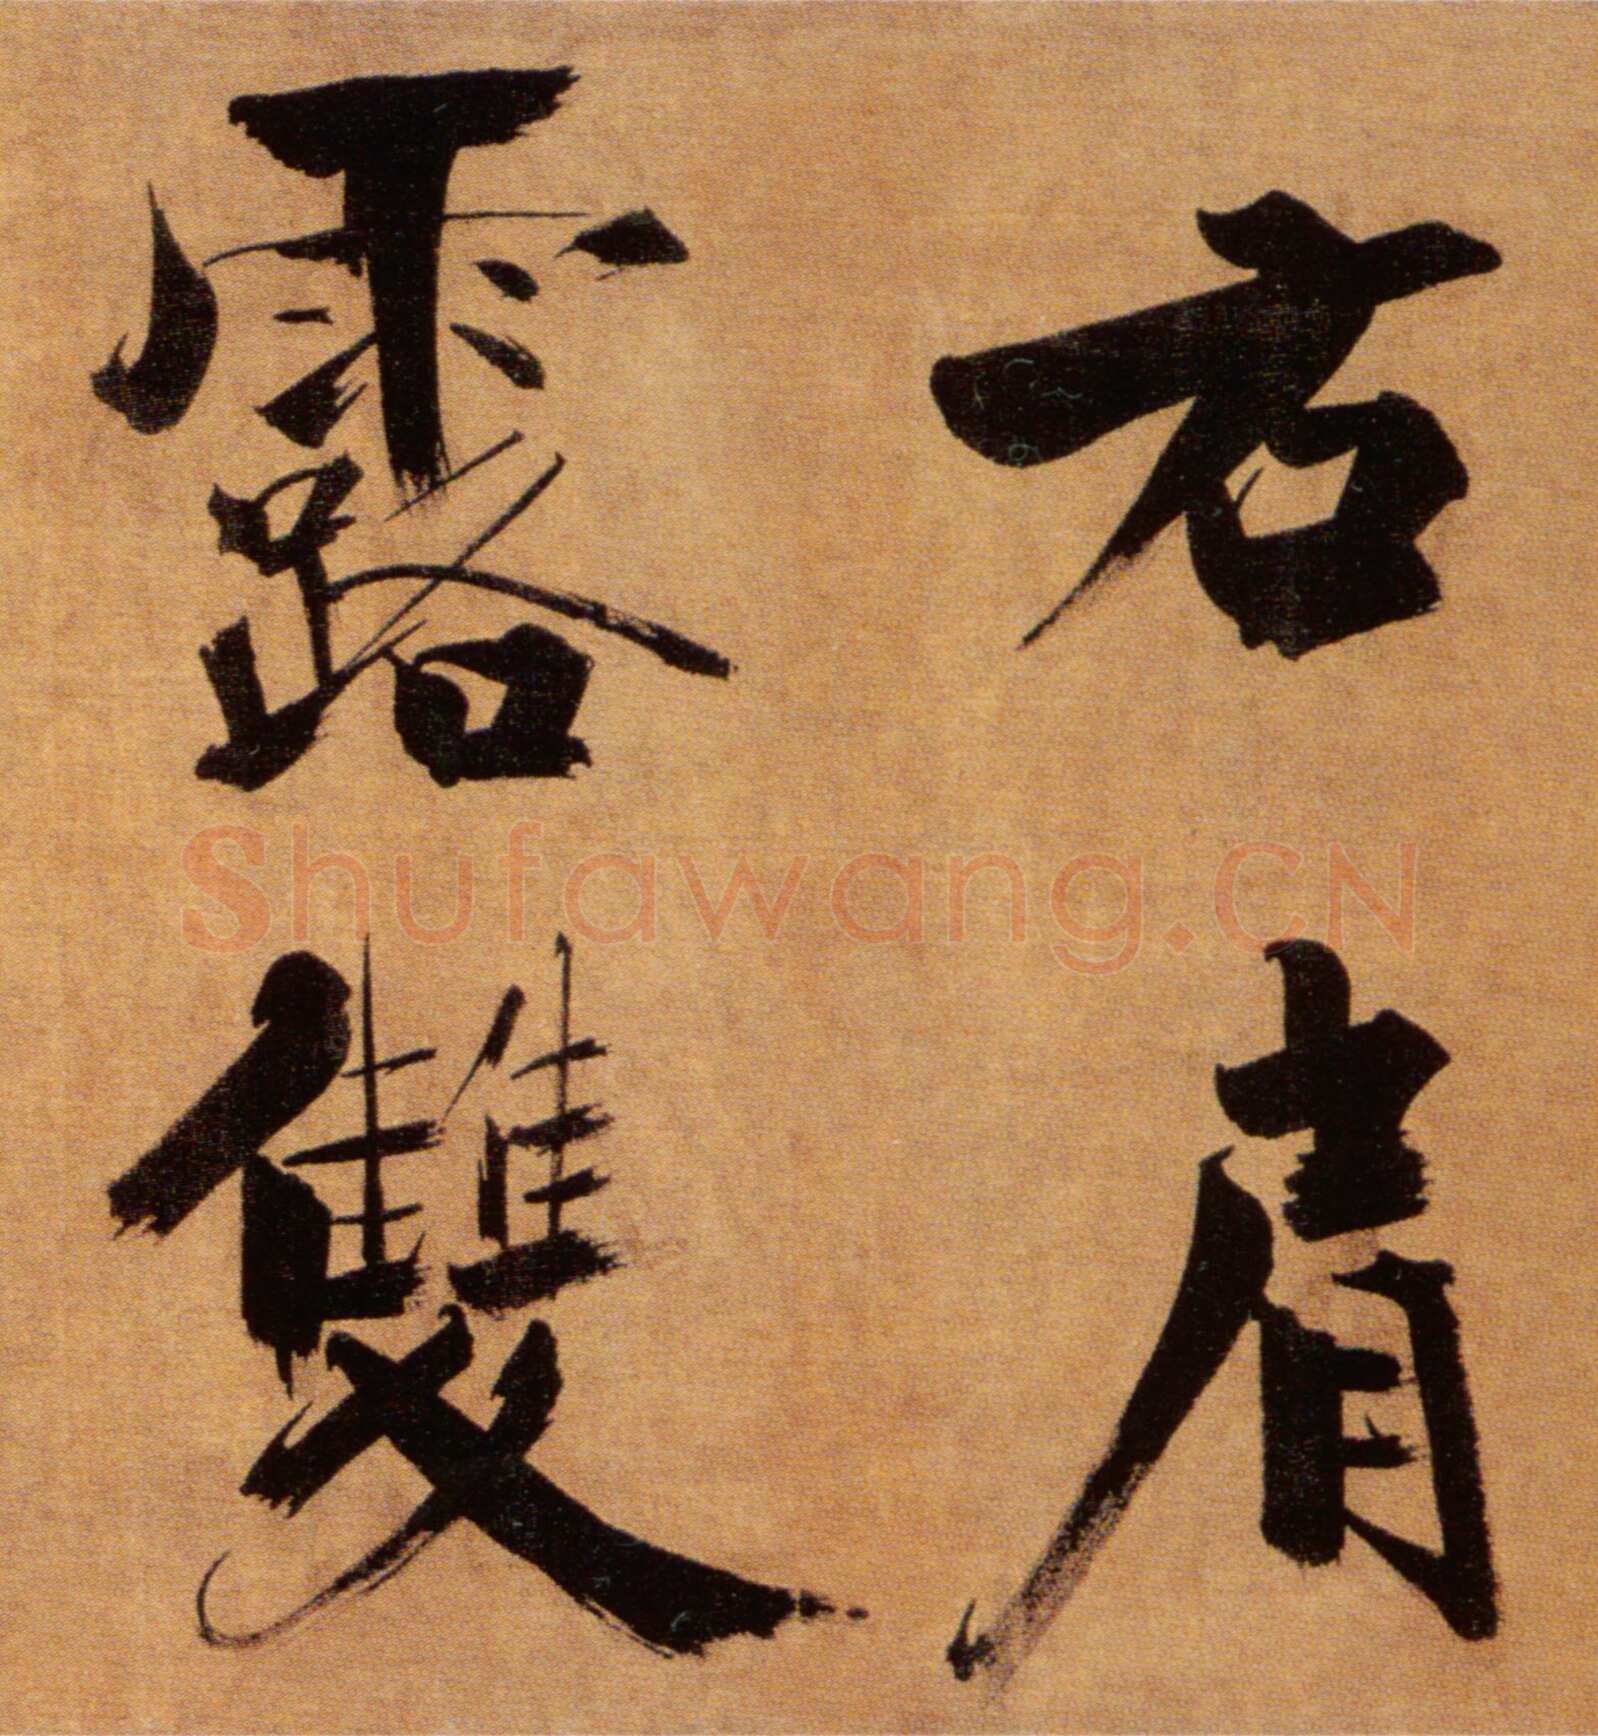 右肩
露雙
Shufawang.CN